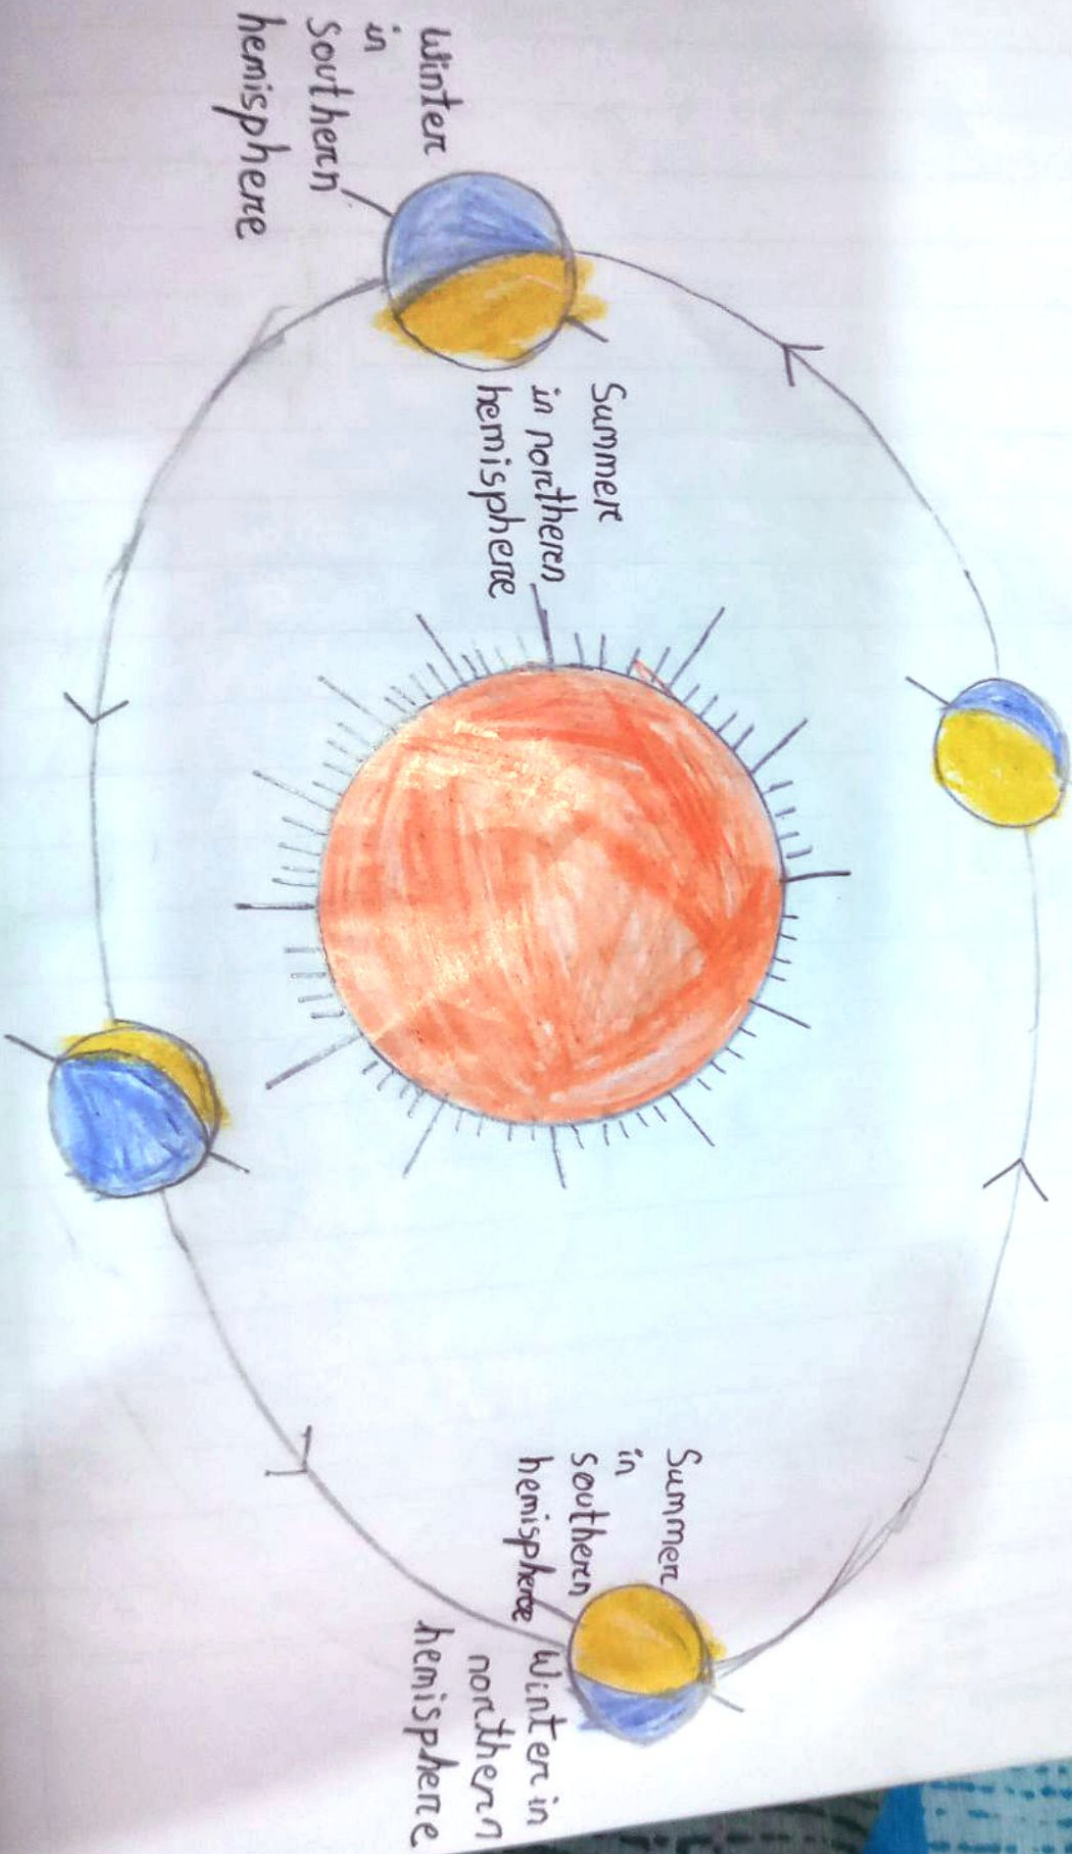 Winter
in
Southern
hemisphere
Summer
in northern
hemisphere
Summer
in
southern
hemisphere
Winter in
northern
hemisphere